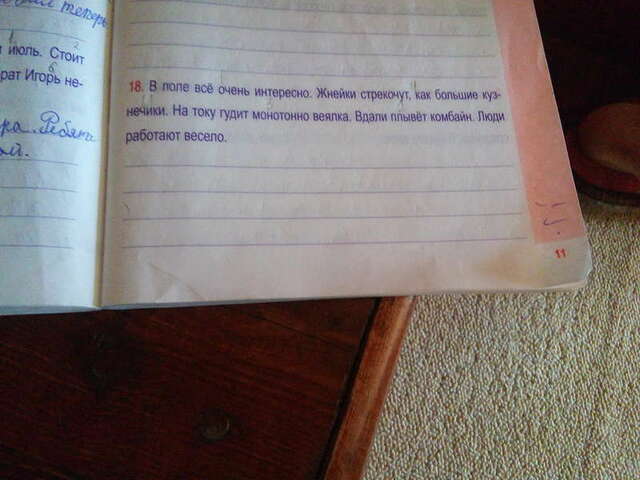 теперь
июль. Стоит
рат Игорь не-
Ребята
18. В поле всё очень интересно. Жнейки стрекочут, как большие куз-
нечики. На току гудит монотонно веялка. Вдали плывёт комбайн. Люди
работают весело.
11